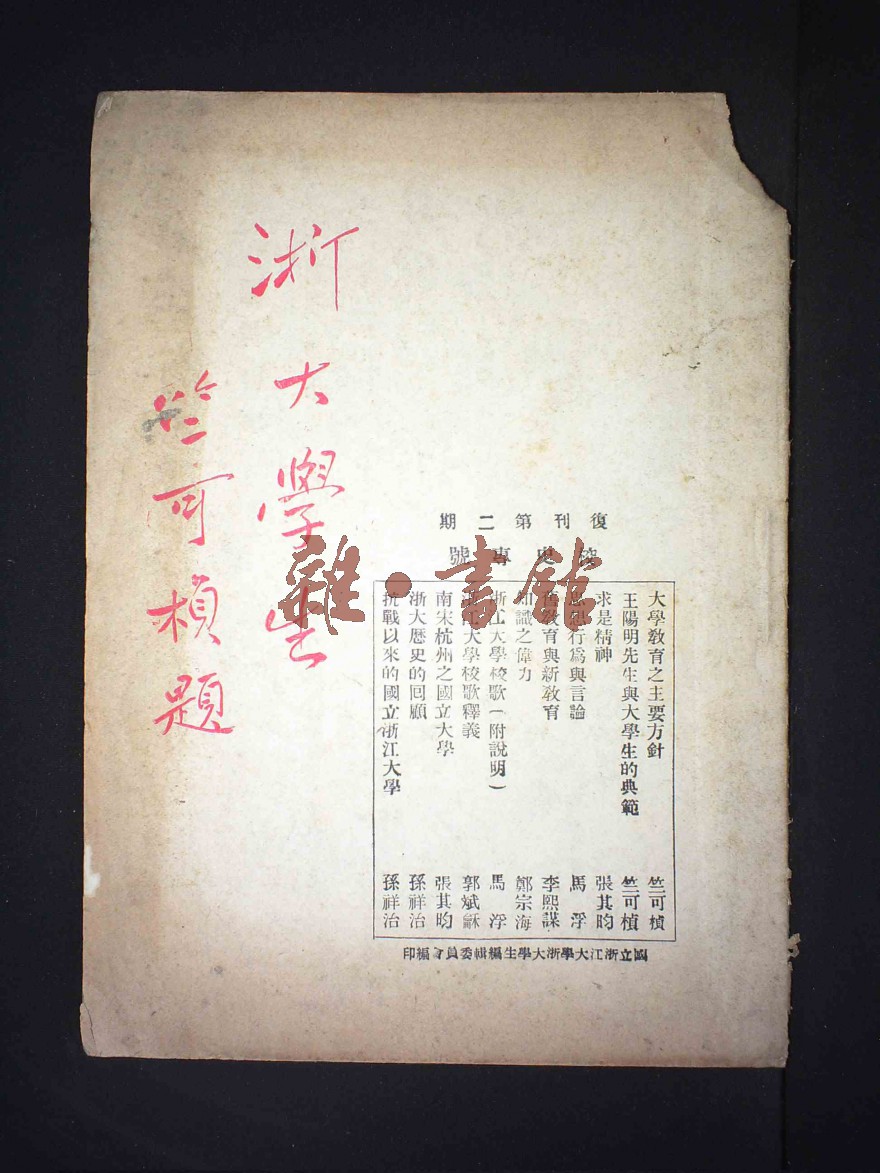 浙大學生
竺可楨題
復刊第二期
校史專號
大學教育之主要方針 竺可楨
王陽明先生與大學生的典範 竺可楨
求是精神 張其昀
思想行為與言論 馬浮
舊教育與新教育 李熙謀
知識之偉力 鄭宗海
浙江大學校歌(附說明) 馬浮
浙江大學校歌釋義 郭斌龢
南宋杭州之國立大學 張其昀
浙大歷史的回顧 孫祥治
抗戰以來的國立浙江大學 孫祥治
國立浙江大學浙大學生編輯委員會編印
雜·書館